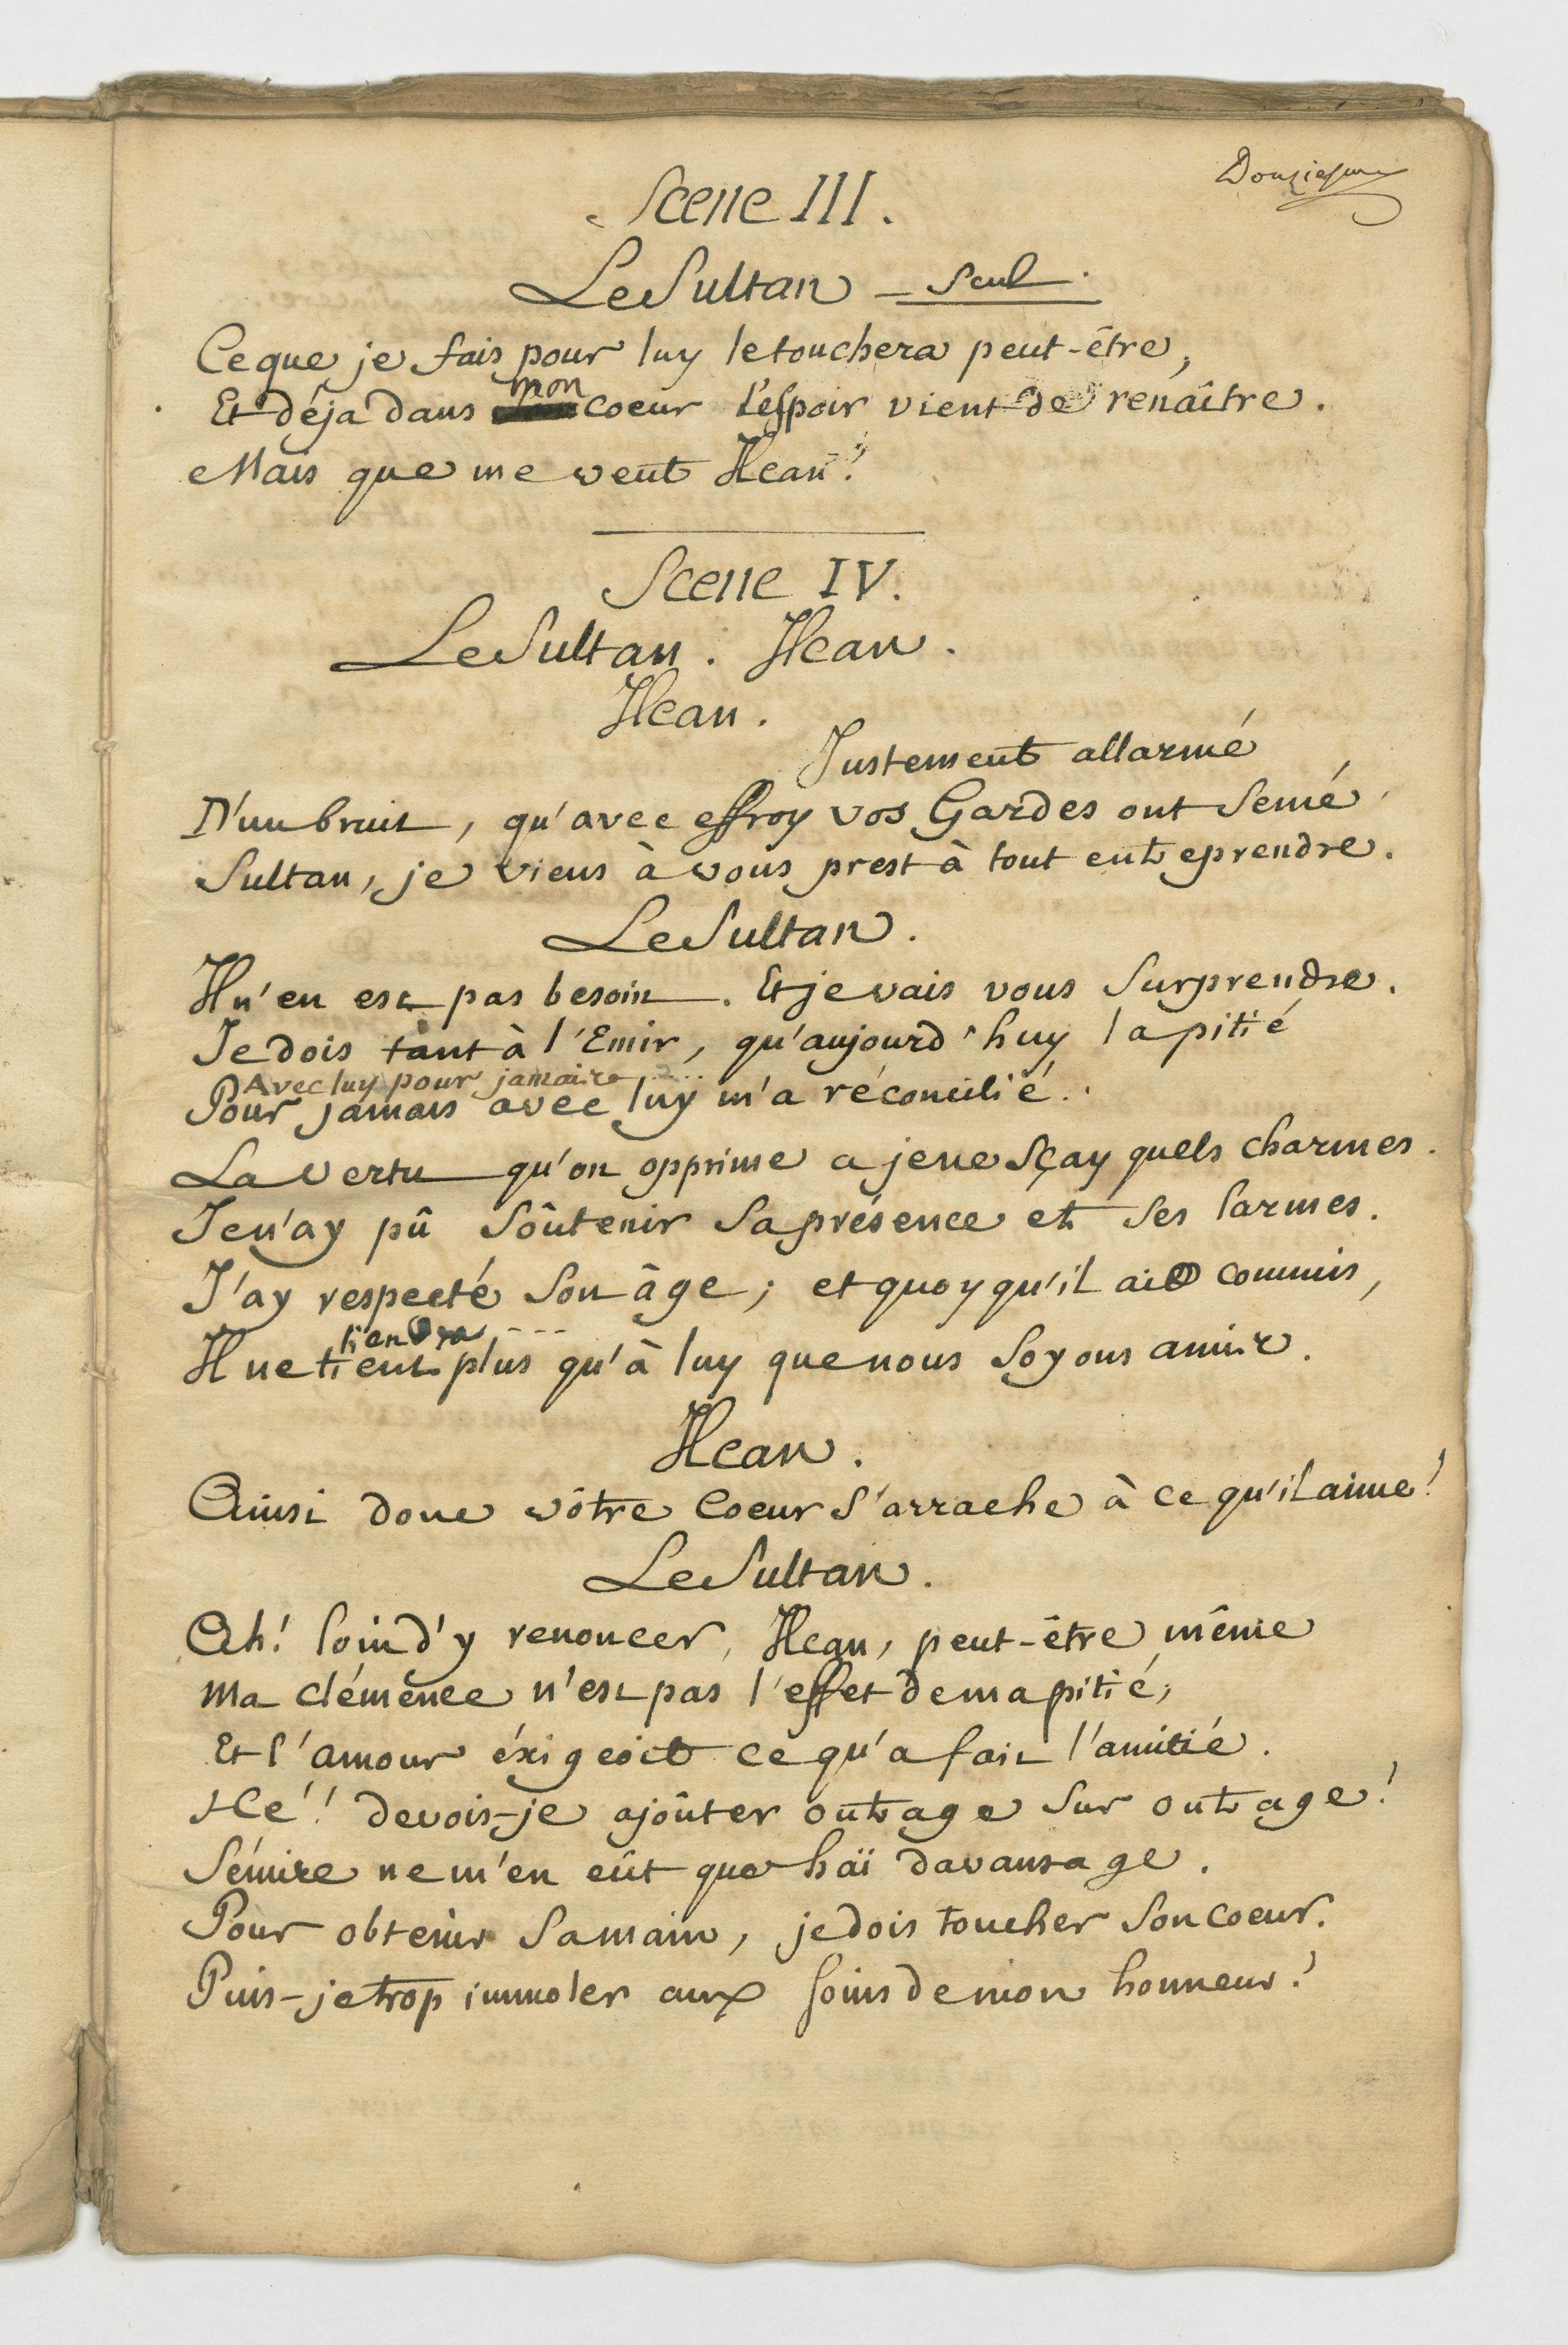 Douziesme
Scene III.
Le Sultan – Seul.
Ce que je fais pour luy le touchera peut-être,
mon
Et déja dans coeur l'espoir vient de renaître.
Mais que me veut Ilcan?
Scene IV.
Le Sultan. Ilcan.
Ilcan.
Justement allarmé
D'un bruit, qu'avec effroy vos Gardes ont Semé,
Sultan, je viens à vous prest à tout entreprendre.
Le Sultan.
Il n'en est pas besoin. Et je vais vous Surprendre.
Je dois tant à l'Emir, qu'aujourd'huy la pitié
Avec luy pour jamais
Pour jamais avec luy m'a réconcilié.
La vertu qu'on opprime a je ne sçay quels charmes.
Je n'ay pû Soûtenir Sa présence et Ses larmes.
J'ay respecté Son âge; et quoy qu'il ait commis,
tiendra ---
Il ne tient plus qu'à luy que nous Soyons amis.
Ilcan.
Ainsi donc vôtre Coeur S'arrache à ce qu'il aime?
Le Sultan.
Ah! loin d'y renoncer, Ilcan, peut-être même
Ma clémence n'est pas l'effet de ma pitié,
Et l'amour éxigeoit ce qu'a fait l'amitié.
Hé! devois-je ajoûter outrage Sur outrage?
Sémire ne m'en eût que haï davantage.
Pour obtenir Sa main, je dois toucher Son coeur.
Puis-je trop immoler aux soins de mon honneur?